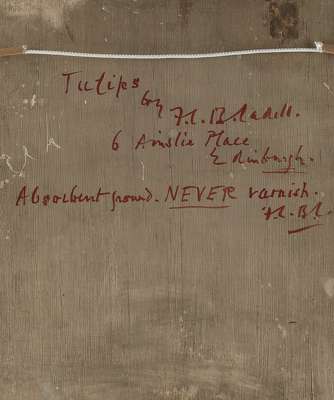 Tulips
by
F.C.B. Cadell.
6 Ainslie Place
Edinburgh.
Absorbent ground. NEVER varnish.
F.C.B.C.